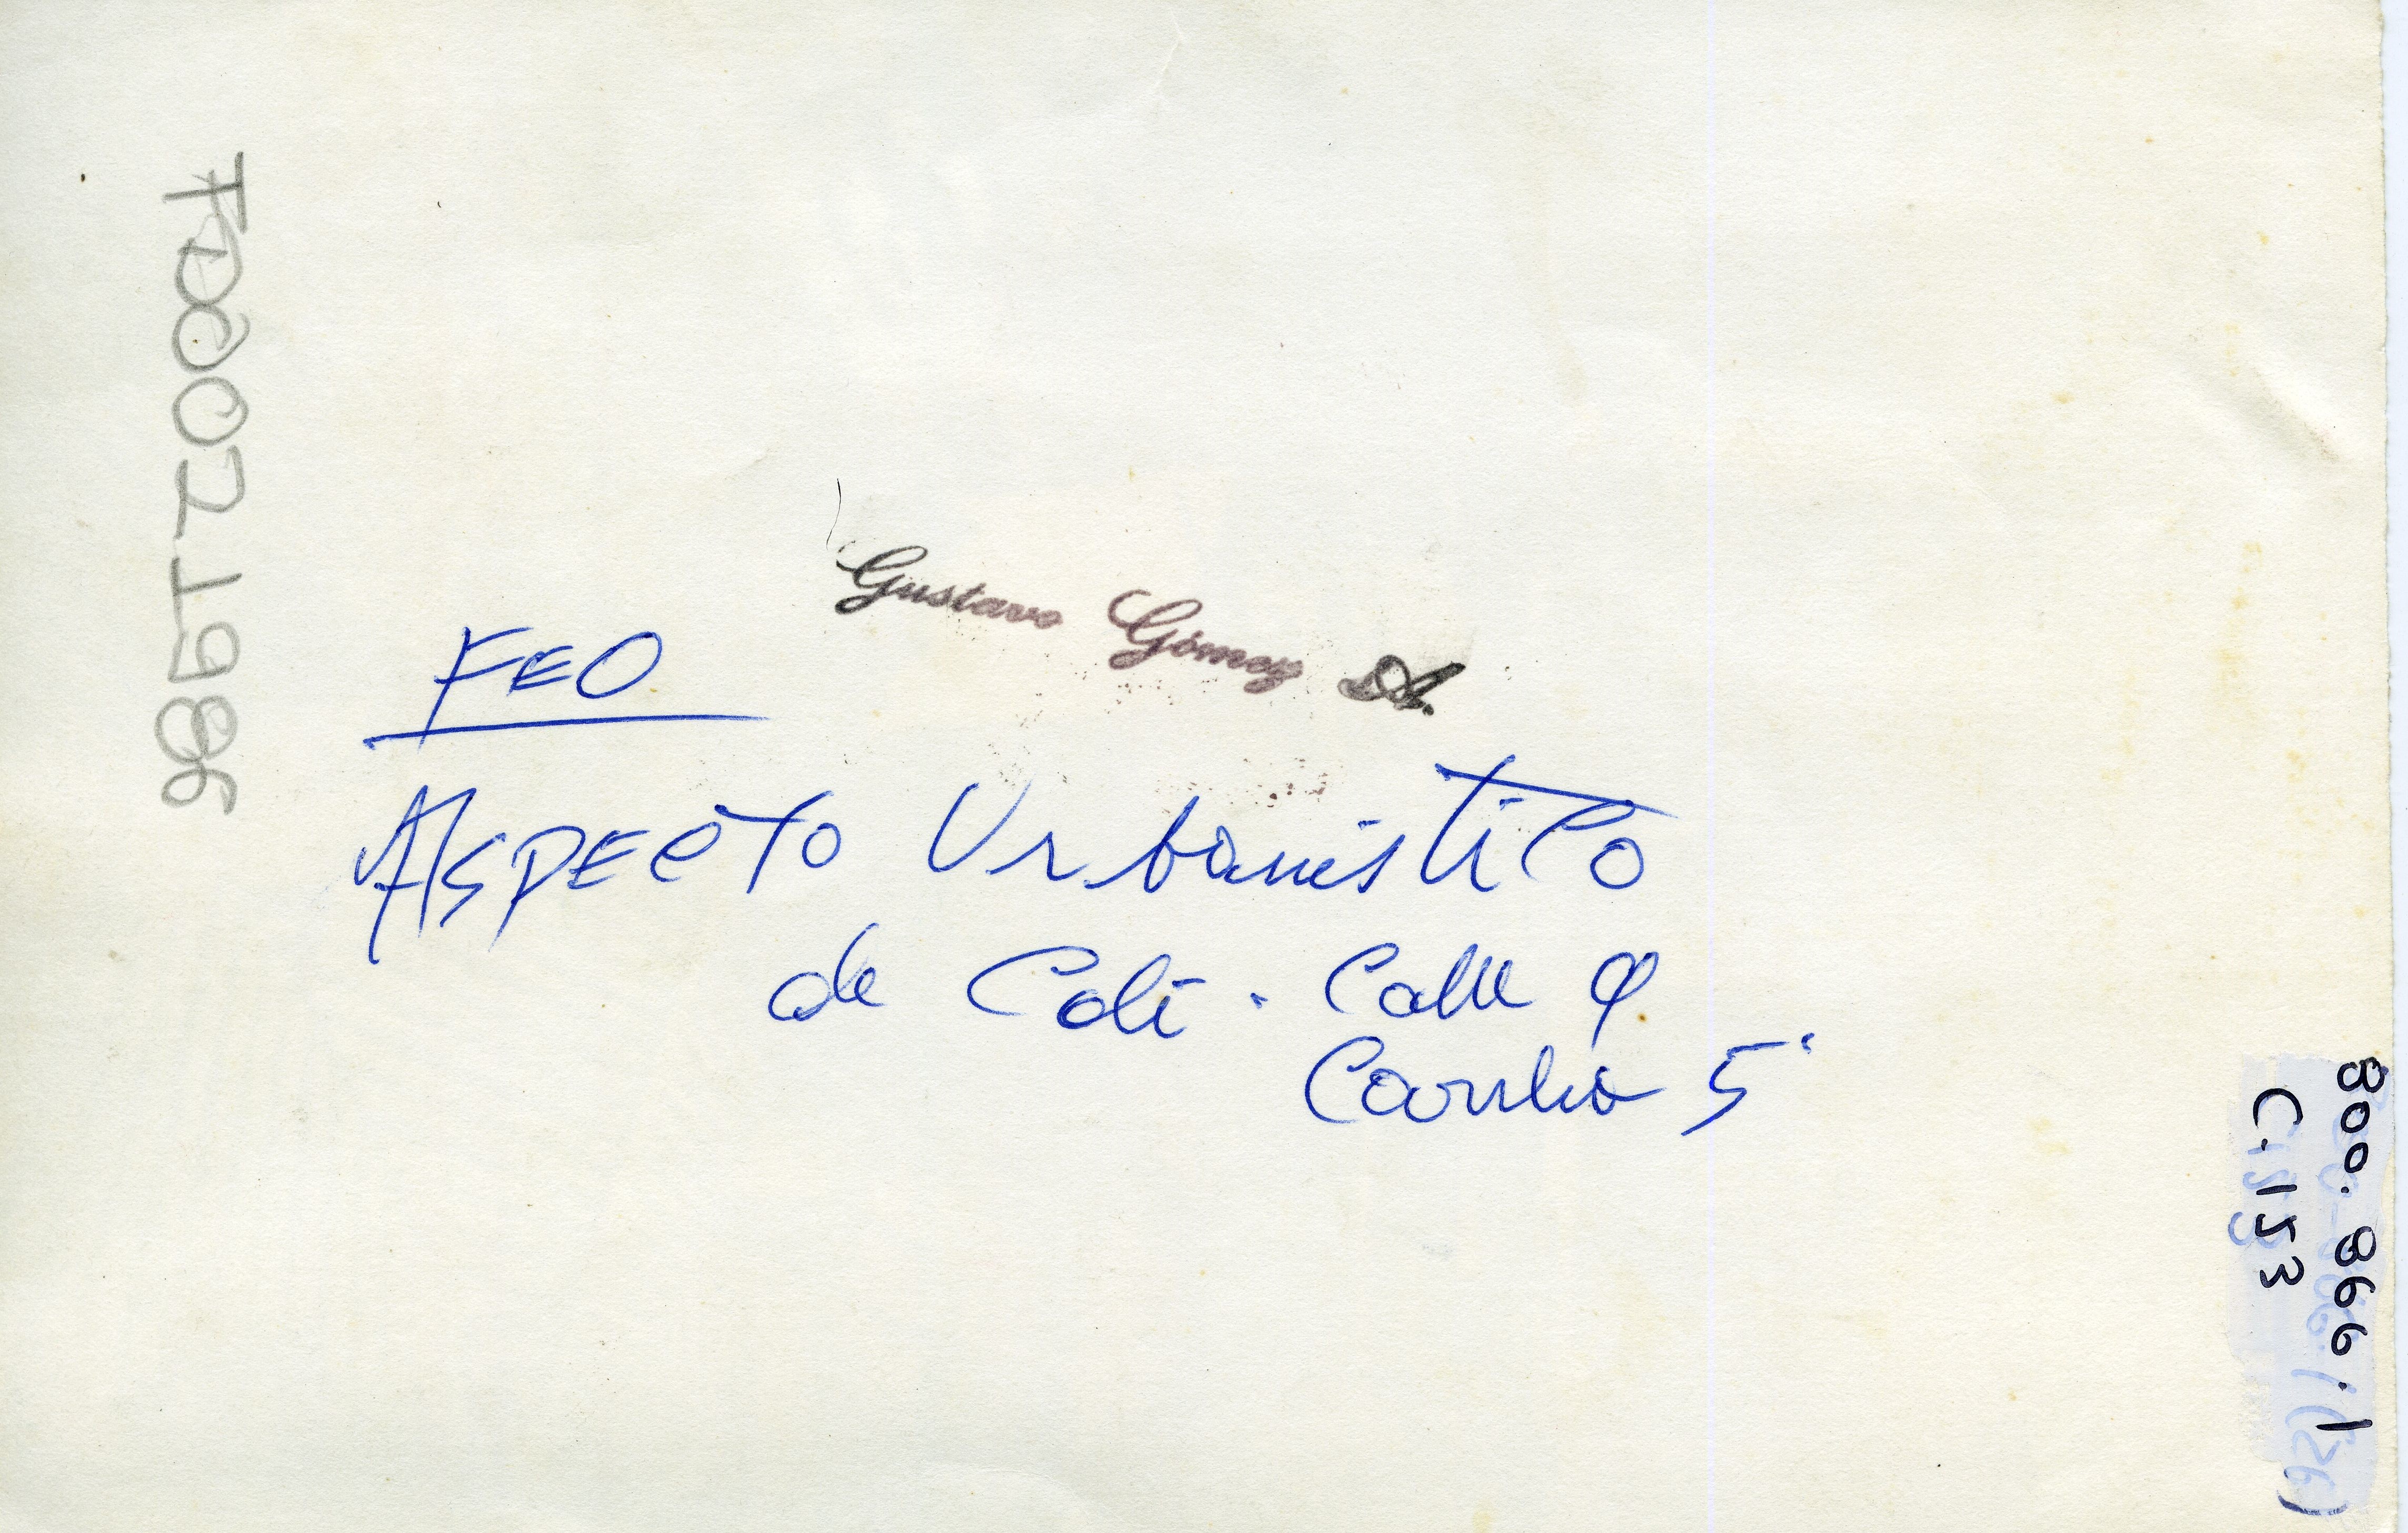 FD0021986
Gustavo Gómez A.
FEO
ASPECTO Urbanístico
de Cali. Calle 9
Carrera 5ª
800.866.1
C.153